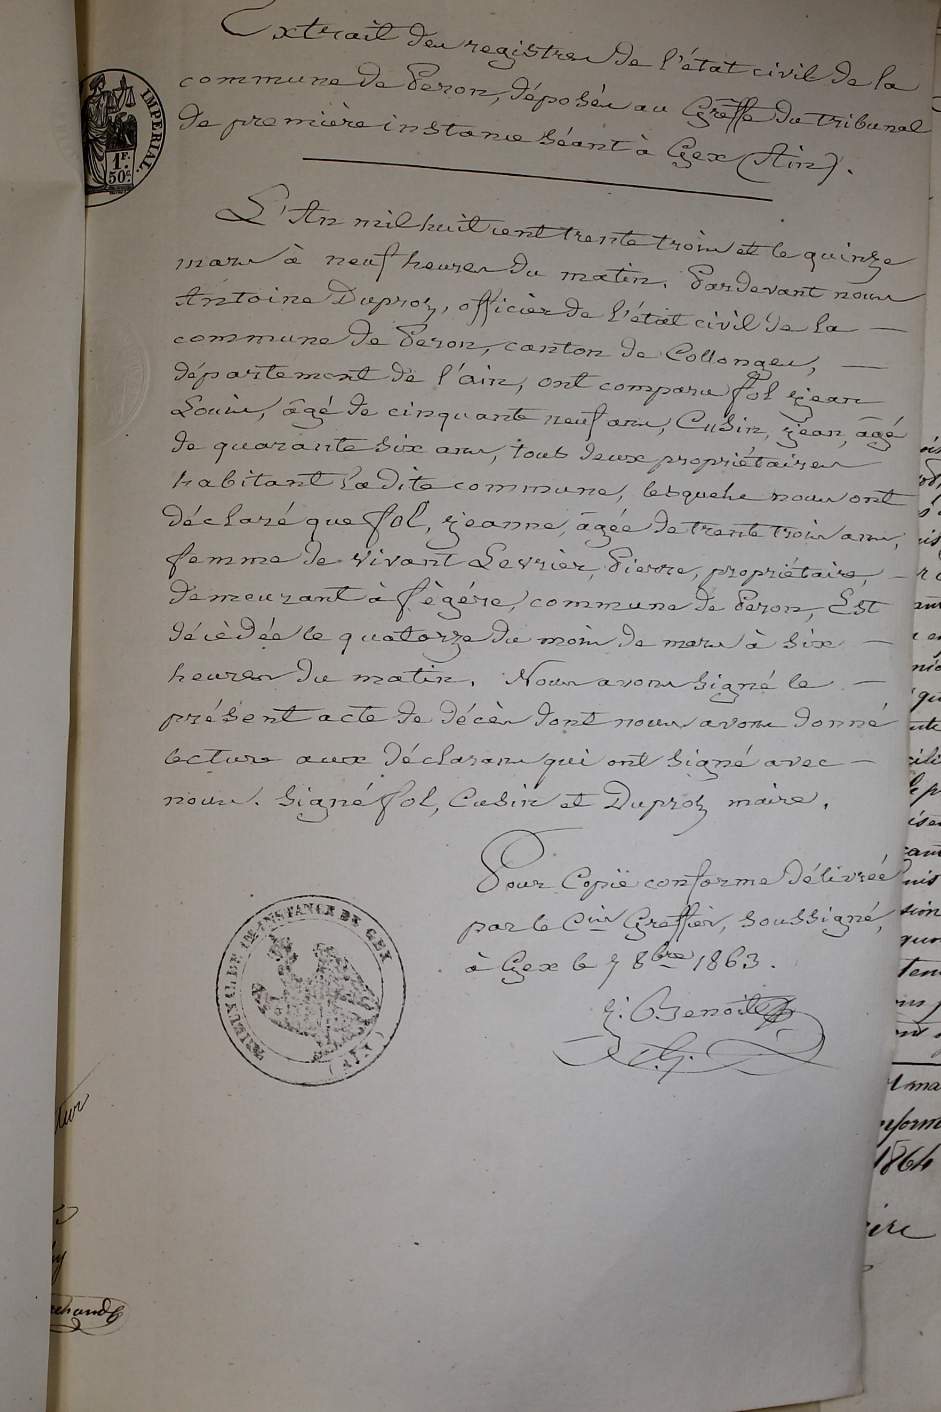 Extrait des registres de l'état civil de la
commune de Peron, déposés au Greffe du tribunal
de première instance séant à Gex (Ain).
IMPERIAL.
1F.
50c.
L'An mil huit cent trente trois et le quinze
mars à neuf heures du matin. Pardevant nous
Antoine Duproz, officier de l'état civil de la —
commune de Peron, canton de Collonges, —
département de l'ain, ont comparu fol jean
Louis, âgé de cinquante neuf ans, Cusin, jean, âgé
de quarante six ans, tous deux propriétaires
habitant ladite commune, lesquels nous ont
déclaré que fol, jeanne, âgée de trente trois ans,
femme de vivant Levrier, Pierre, propriétaire, —
demeurant à fègére, commune de Peron, Est
décédée le quatorze du mois de mars à six —
heures du matin. Nous avons signé le —
présent acte de décès dont nous avons donné
lecture aux déclarans qui ont signé avec —
nous. signé fol, Cusin et Duproz maire.
Pour Copie conforme délivrée
par le Cuis Greffier, soussigné,
à Gex le 7 8bre 1863.
j. Benoit
TRIBUNAL DE 1RE INSTANCE DE GEX (AIN)
1864